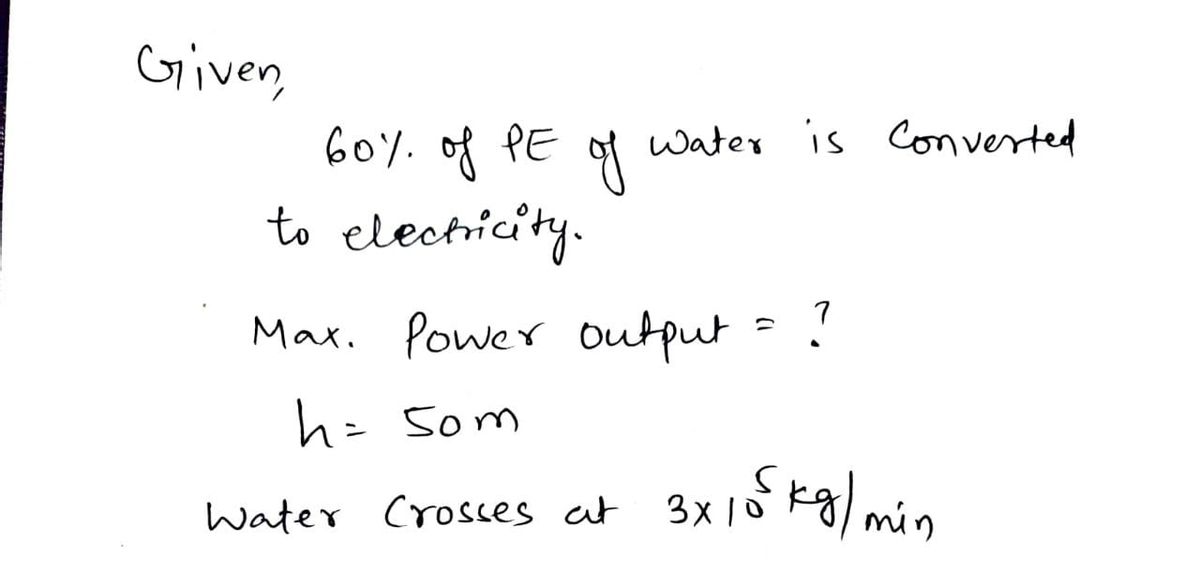 Given,
60%. of PE of water is Converted
to electricity.
Max. Power output = ?
h = 50m
Water Crosses at 3x10⁵ kg/min